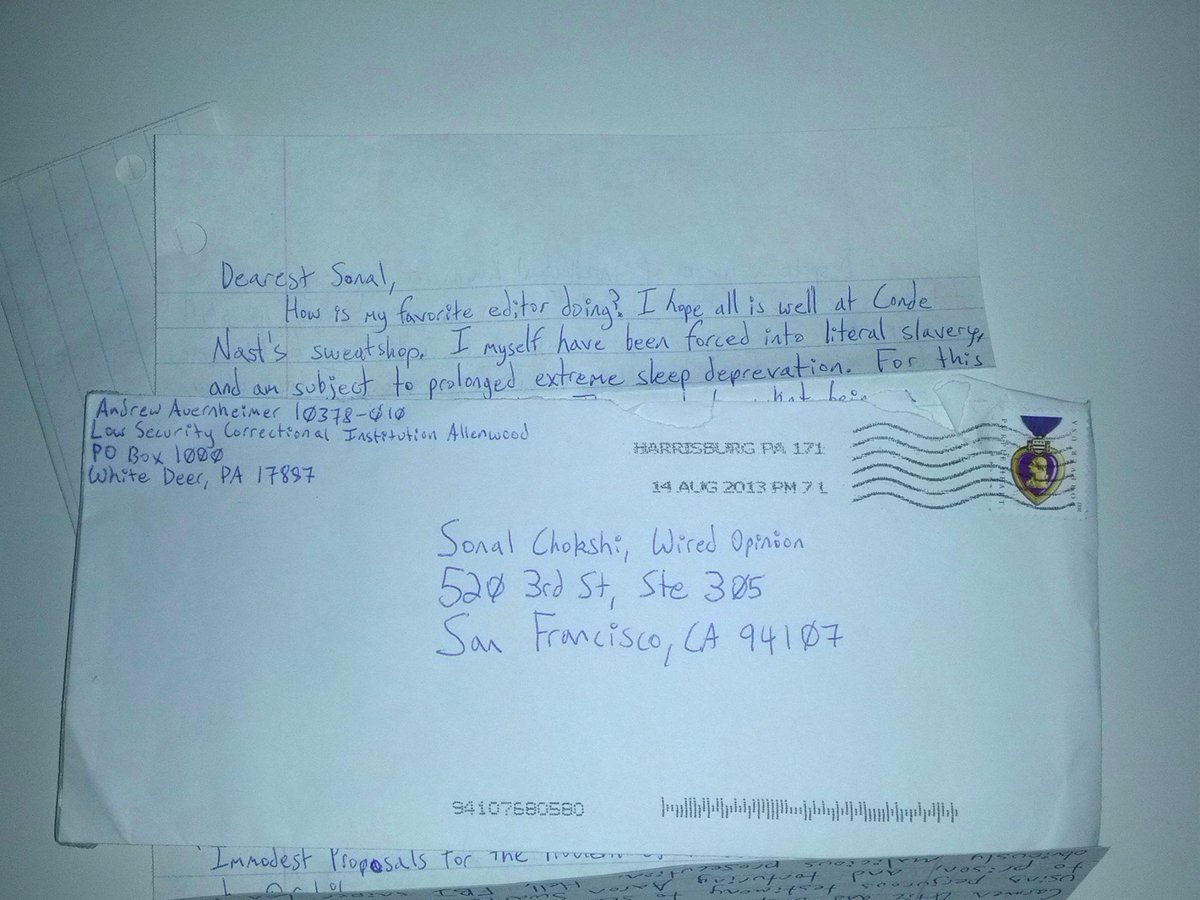 Dearest Sonal,
How is my favorite editor doing? I hope all is well at Conde
Nast's sweatshop. I myself have been forced into literal slavery,
and am subject to prolonged extreme sleep deprevation. For this
Andrew Auernheimer 10378-010
Low Security Correctional Institution Allenwood
PO Box 1000
White Deer, PA 17887
HARRISBURG PA 171
14 AUG 2013 PM 7 L
PURPLE HEART
FOREVER USA
2012
Sonal Chokshi, Wired Opinion
520 3rd St, Ste 305
San Francisco, CA 94107
94107680580
Immodest Proposals for the
obviously malicious prosecution.
to prison, and torturing
using perjurous testimony